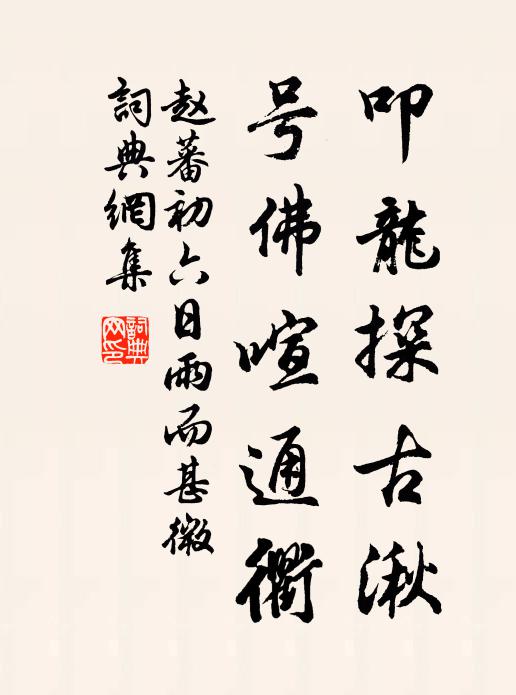 叩龍探古湫
号佛喧通衢
赵蕃初六日雨而甚微
詞典網集
詞典网印